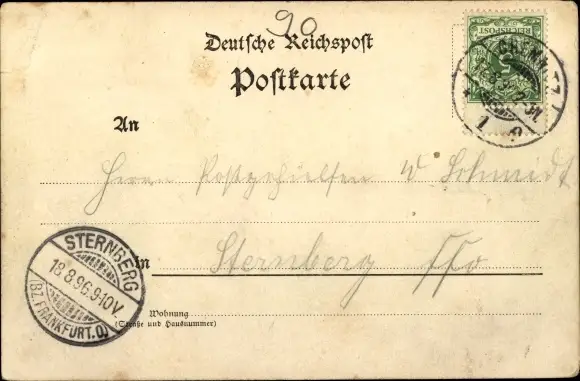 90
Deutsche Reichspost
Postkarte
REICHSPOST
CHEMNITZ
1
An
Herrn Postgehülfen W Schmidt
in Sternberg
STERNBERG
18.8.96.9-10V.
(BZ. FRANKFURT. O.)
Wohnung
(Straße und Hausnummer)